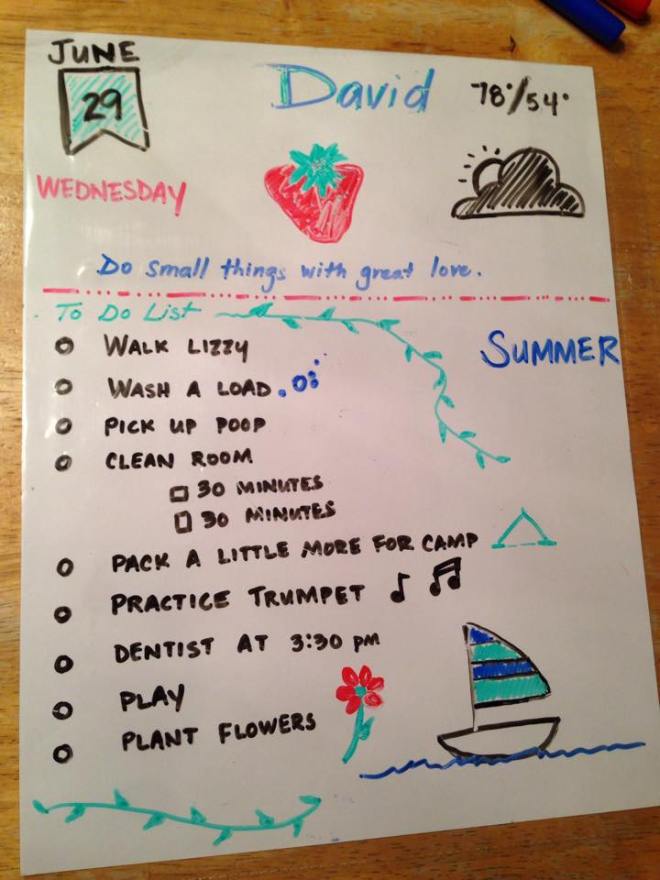 JUNE
29
David
78°/54°
WEDNESDAY
Do small things with great love.
To Do List
SUMMER
WALK LIZZY
WASH A LOAD
PICK UP POOP
CLEAN ROOM
30 MINUTES
30 MINUTES
PACK A LITTLE MORE FOR CAMP
PRACTICE TRUMPET
DENTIST AT 3:30 PM
PLAY
PLANT FLOWERS